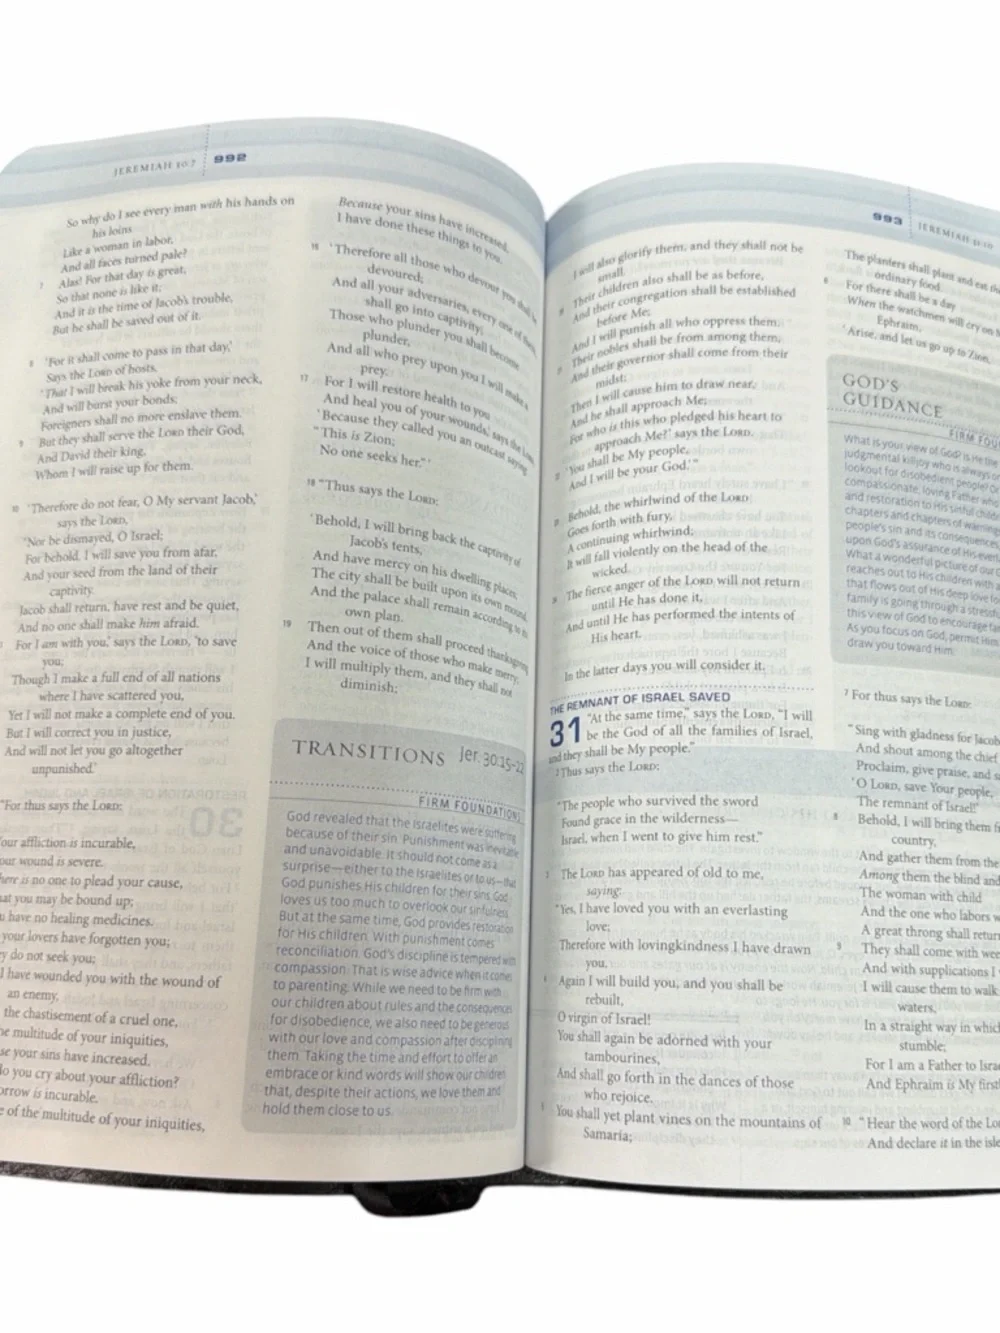 JEREMIAH 30:7 992
So why do I see every man with his hands on
his loins
Like a woman in labor,
And all faces turned pale?
7 Alas! For that day is great,
So that none is like it;
And it is the time of Jacob's trouble,
But he shall be saved out of it.
8 'For it shall come to pass in that day,'
Says the LORD of hosts,
'That I will break his yoke from your neck,
And will burst your bonds;
Foreigners shall no more enslave them.
9 But they shall serve the LORD their God,
And David their king,
Whom I will raise up for them.
10 'Therefore do not fear, O My servant Jacob,'
says the LORD,
'Nor be dismayed, O Israel;
For behold, I will save you from afar,
And your seed from the land of their
captivity.
Jacob shall return, have rest and be quiet,
And no one shall make him afraid.
For I am with you,' says the LORD, 'to save
you;
Though I make a full end of all nations
where I have scattered you,
Yet I will not make a complete end of you.
But I will correct you in justice,
And will not let you go altogether
unpunished.'
"For thus says the LORD:
our affliction is incurable,
our wound is severe.
here is no one to plead your cause,
at you may be bound up;
u have no healing medicines.
your lovers have forgotten you;
y do not seek you;
I have wounded you with the wound of
an enemy,
the chastisement of a cruel one,
e multitude of your iniquities,
se your sins have increased.
do you cry about your affliction?
orrow is incurable.
e of the multitude of your iniquities,
Because your sins have increased,
I have done these things to you.
16 'Therefore all those who devour you shall be
devoured;
And all your adversaries, every one of them,
shall go into captivity;
Those who plunder you shall become
plunder,
And all who prey upon you I will make a
prey.
17 For I will restore health to you
And heal you of your wounds,' says the LORD,
'Because they called you an outcast saying:
"This is Zion;
No one seeks her."'
18 "Thus says the LORD:
'Behold, I will bring back the captivity of
Jacob's tents,
And have mercy on his dwelling places;
The city shall be built upon its own mound,
And the palace shall remain according to its
own plan.
19 Then out of them shall proceed thanksgiving
And the voice of those who make merry;
I will multiply them, and they shall not
diminish;
TRANSITIONS Jer. 30:15–22
FIRM FOUNDATIONS
God revealed that the Israelites were suffering
because of their sin. Punishment was inevitable
and unavoidable. It should not come as a
surprise—either to the Israelites or to us—that
God punishes His children for their sins. God
loves us too much to overlook our sinfulness.
But at the same time, God provides restoration
for His children. With punishment comes
reconciliation. God's discipline is tempered with
compassion. That is wise advice when it comes
to parenting. While we need to be firm with
our children about rules and the consequences
for disobedience, we also need to be generous
with our love and compassion after disciplining
them. Taking the time and effort to offer an
embrace or kind words will show our children
that, despite their actions, we love them and
hold them close to us.
993 JEREMIAH 31:10
I will also glorify them, and they shall not be
small.
Their children also shall be as before,
And their congregation shall be established
before Me;
And I will punish all who oppress them.
Their nobles shall be from among them,
And their governor shall come from their
midst;
Then I will cause him to draw near,
And he shall approach Me;
For who is this who pledged his heart to
approach Me?' says the LORD.
'You shall be My people,
And I will be your God.'"
Behold, the whirlwind of the LORD
Goes forth with fury,
A continuing whirlwind;
It will fall violently on the head of the
wicked.
The fierce anger of the LORD will not return
until He has done it,
And until He has performed the intents of
His heart.
In the latter days you will consider it.
THE REMNANT OF ISRAEL SAVED
31 "At the same time," says the LORD, "I will
be the God of all the families of Israel,
and they shall be My people."
2 Thus says the LORD:
"The people who survived the sword
Found grace in the wilderness—
Israel, when I went to give him rest."
3 The LORD has appeared of old to me,
saying:
"Yes, I have loved you with an everlasting
love;
Therefore with lovingkindness I have drawn
you.
4 Again I will build you, and you shall be
rebuilt,
O virgin of Israel!
You shall again be adorned with your
tambourines,
And shall go forth in the dances of those
who rejoice.
5 You shall yet plant vines on the mountains of
Samaria;
The planters shall plant and eat the
ordinary food.
6 For there shall be a day
When the watchmen will cry on
Ephraim,
'Arise, and let us go up to Zion,
GOD'S
GUIDANCE
FIRM FOU
What is your view of God? Is He the
judgmental killjoy who is always o
lookout for disobedient people? Or
compassionate, loving Father who
and restoration to His sinful child
chapters and chapters of warning
people's sin and its consequences,
upon God's assurance of His ever
What a wonderful picture of our G
reaches out to His children with a
that flows out of His deep love fo
family is going through a stressf
this view of God to encourage fa
As you focus on God, permit Him
draw you toward Him.
7 For thus says the LORD:
"Sing with gladness for Jacob
And shout among the chief
Proclaim, give praise, and s
'O LORD, save Your people,
The remnant of Israel!'
8 Behold, I will bring them f
country,
And gather them from the
Among them the blind and
The woman with child
And the one who labors w
A great throng shall retur
9 They shall come with wee
And with supplications I
I will cause them to walk
waters,
In a straight way in whic
stumble;
For I am a Father to Israe
And Ephraim is My first
10 "Hear the word of the Lo
And declare it in the isle